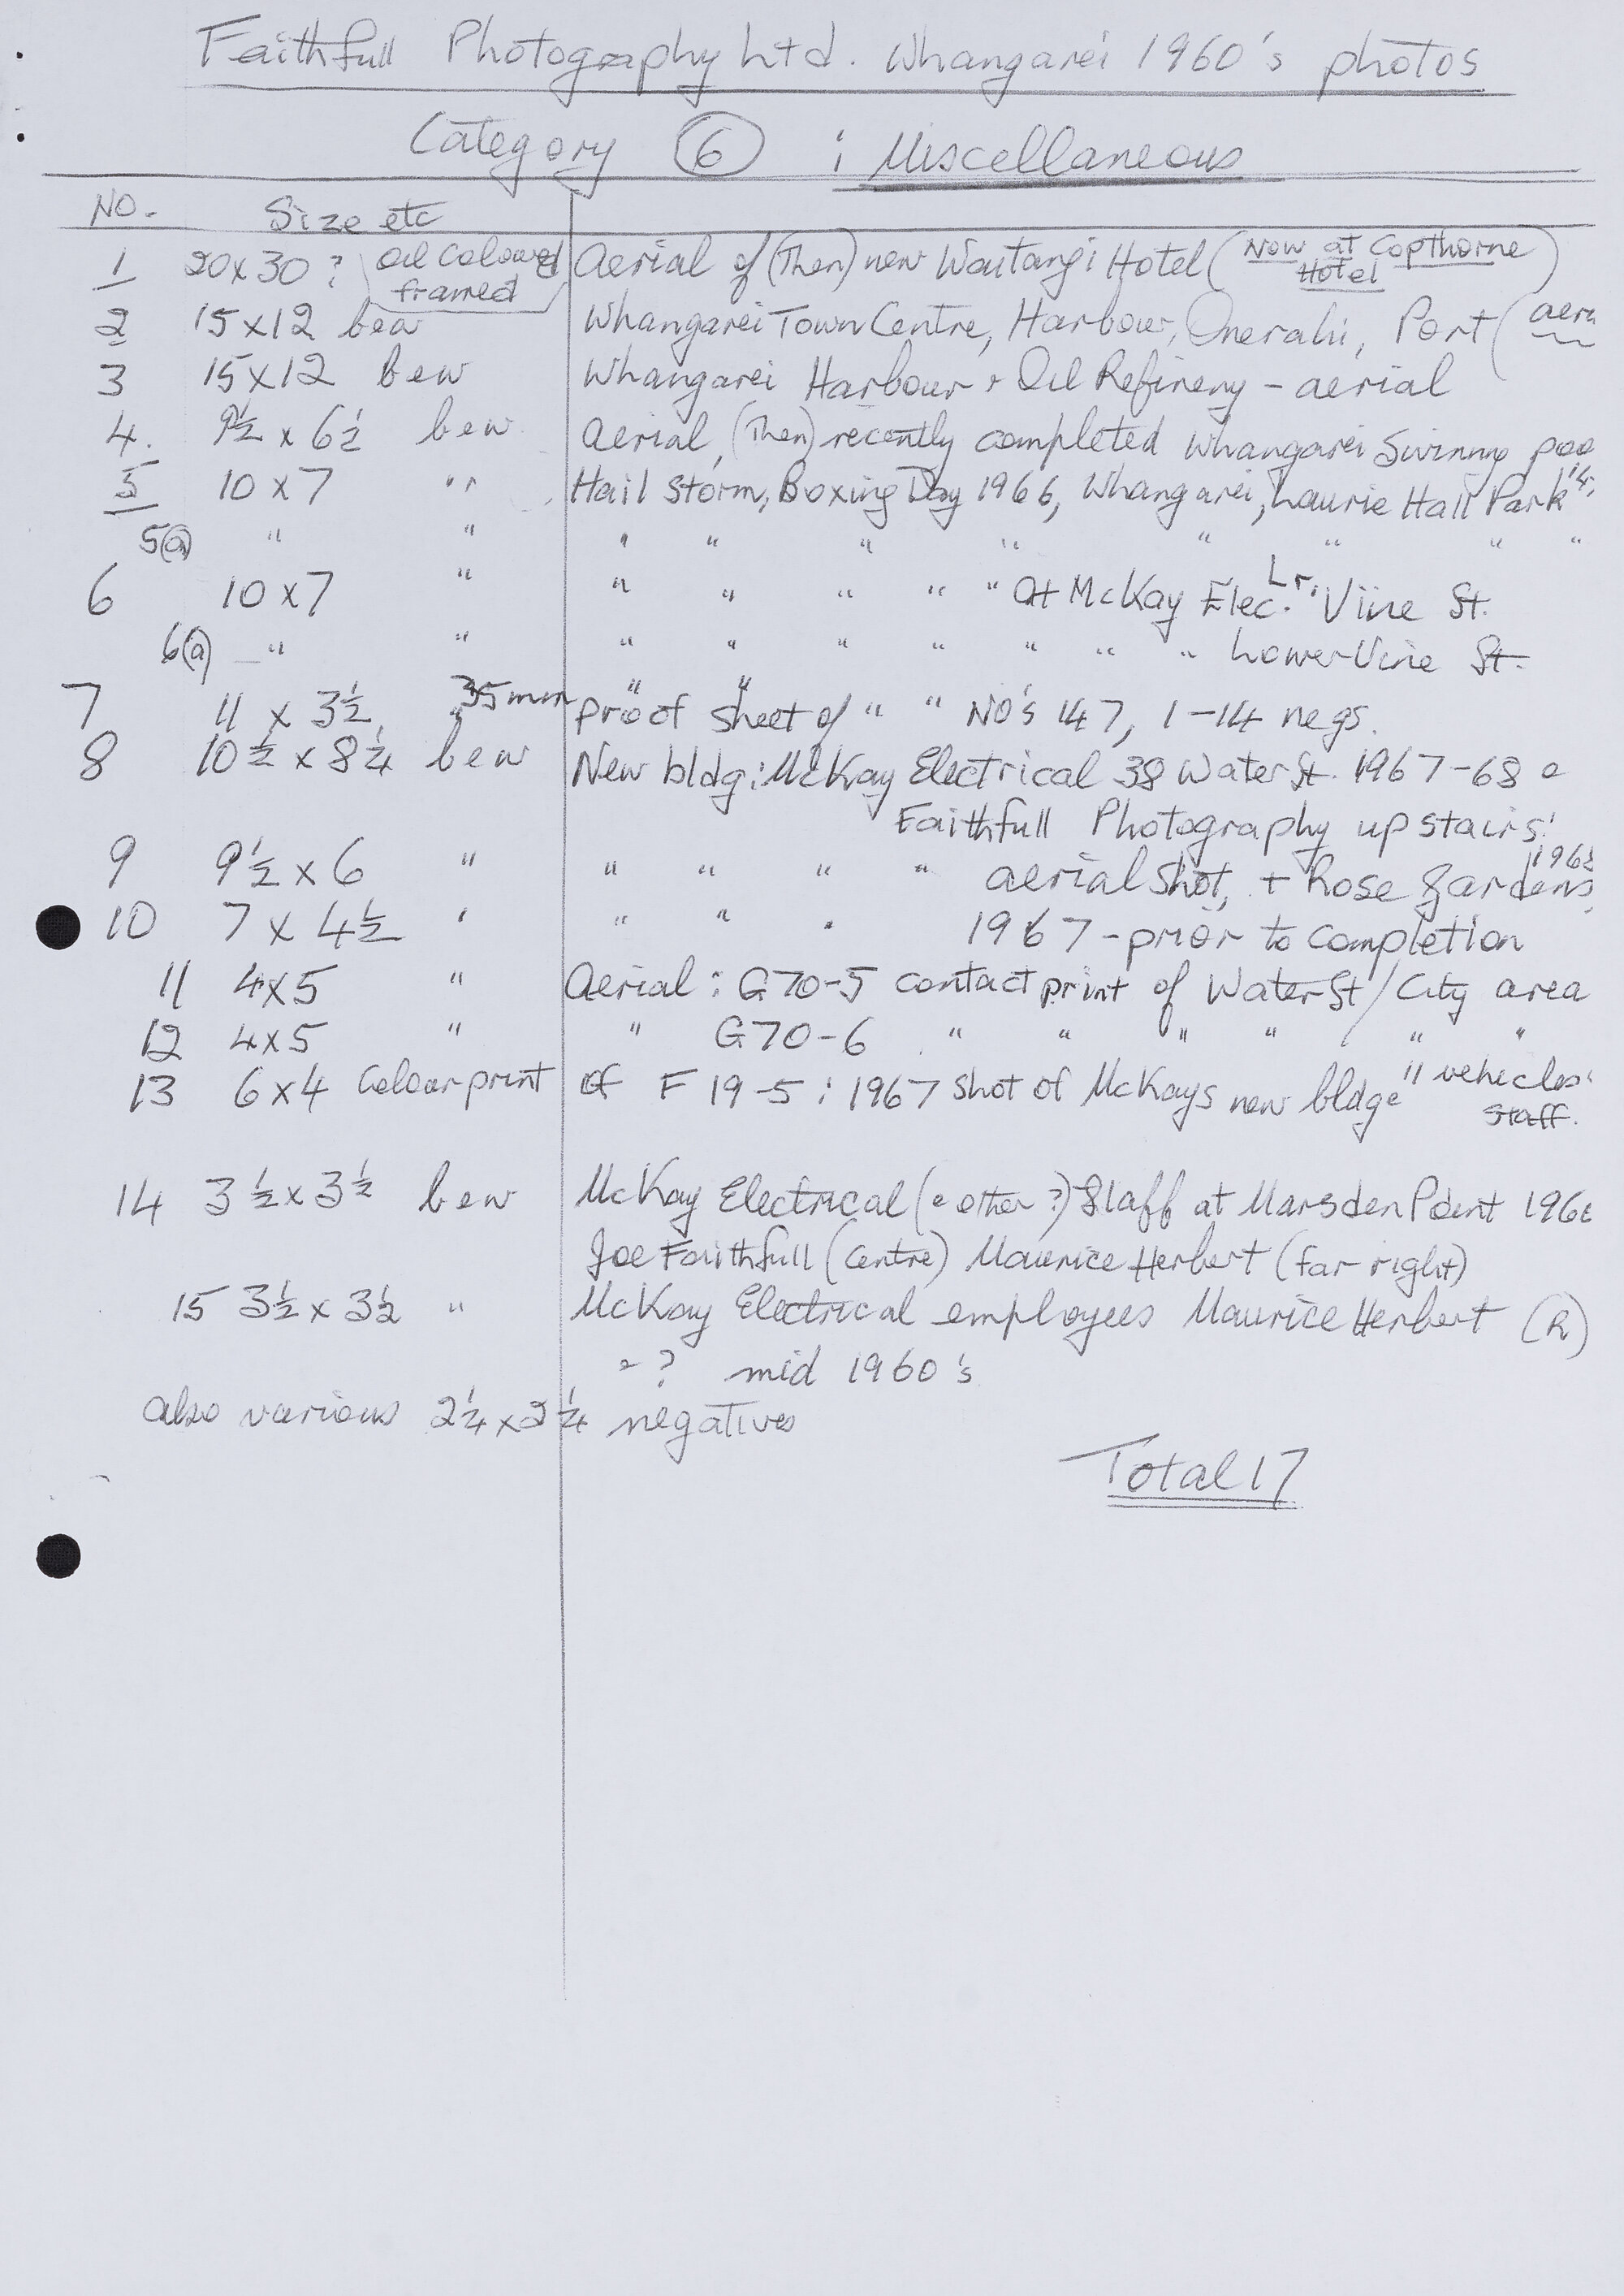 Faithfull Photography Ltd. Whangarei 1960's photos
Category 6 : Miscellaneous
NO. Size etc
1 20x30 ? oil coloured framed Aerial of (then) new Waitangi Hotel (Now at Copthorne Hotel)
2 15x12 b&w Whangarei Town Centre, Harbour, Onerahi, Port (
3 15x12 b&w Whangarei Harbour & Oil Refinery - aerial
4. 9½ x 6½ b&w Aerial, (then) recently completed Whangarei
5 10x7 " Hail storm, Boxing Day 1966, Whangarei, Laurie Hall Park
5(a) " " " " " " " " " "
6 10x7 " " " " " " at McKay Elec. Lr. Vine St.
6(a) " " " " " " " " " Lower Vine St.
7 11 x 3½ 35mm proof sheet of " " NO's 147, 1-14 negs.
8 10½ x 8¼ b&w New bldg: McKay Electrical 38 Water St. 1967-68 &
Faithfull Photography upstairs.
9 9½ x 6 " " " " " aerial shot, + Rose Gardens,
10 7 x 4½ " " " " 1967 - prior to completion
11 4x5 " Aerial : G70-5 contact print of Water St/City area
12 4x5 " " G70-6 " " " " " "
13 6x4 Colour print of F19-5 : 1967 shot of McKays new bldg & " vehicles & staff.
14 3½ x 3½ b&w McKay Electrical (& other ?) Staff at Marsden Point
Joe Faithfull (Centre) Maurice Herbert (far right)
15 3½ x 3½ " McKay Electrical employees Maurice Herbert (R)
& ? mid 1960's
also various 2¼ x 2¼ negatives
Total 17